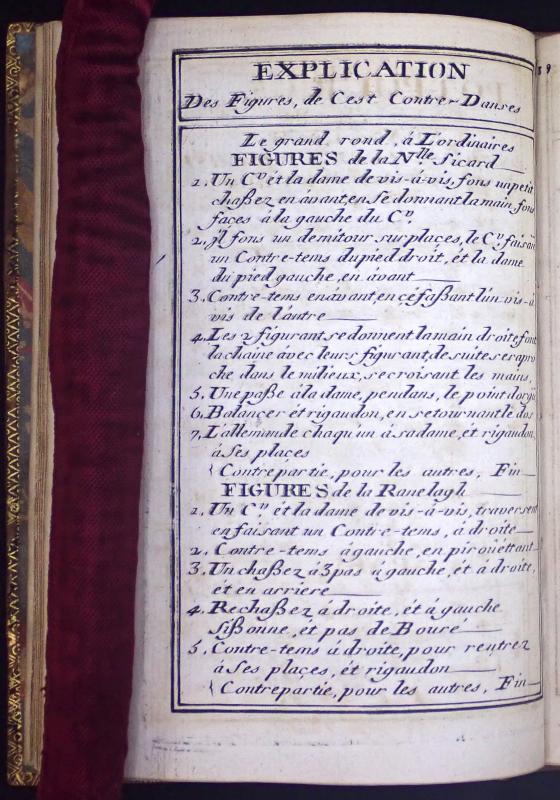 EXPLICATION
Des Figures, de Cest Contre-Danses
Le grand rond, á L'ordinaires
FIGURES de la Nlle Sicard
1. Un Cr ét la dame de vis-á-vis, fons un petit
chaßez en ávant, en se donnant la main, font
faces á la gauche du Cr.
2. jl fons un demitour sur places, le Cr. faisan
un Contre-tems du pied droit, ét la dame
du pied gauche, en ávant
3. Contre-tems en ávant, en çéfaßant l'ún vis-á
vis de l'áutre
4. Les 2 figurant, se donnent la main droite font
la chaine ávec leurs figurant, de suite se rapro
che dans le milieux, se croisant les mains,
5. Une paße á la dame, pendans, le point d'orgue
6. Balancer ét rigaudon, en se tournant le dos
7. L'allemande chaqu'un á sa dame, ét rigaudon,
á ses places
Contrepartie, pour les autres, Fin
FIGURES de la Ranelagh
1. Un Cr ét la dame de vis-á-vis, traversent
en faisant un Contre-tems, á droite
2. Contre-tems á gauche, en piroüettant
3. Un chaßez á 3 pas á gauche, ét á droite,
ét en arriere
4. Rechaßez á droite, ét á gauche
Sißonne, ét pas de Bouré
5. Contre-tems á droite, pour rentrez
á ses plaçes, ét rigaudon
Contrepartie, pour les autres, Fin